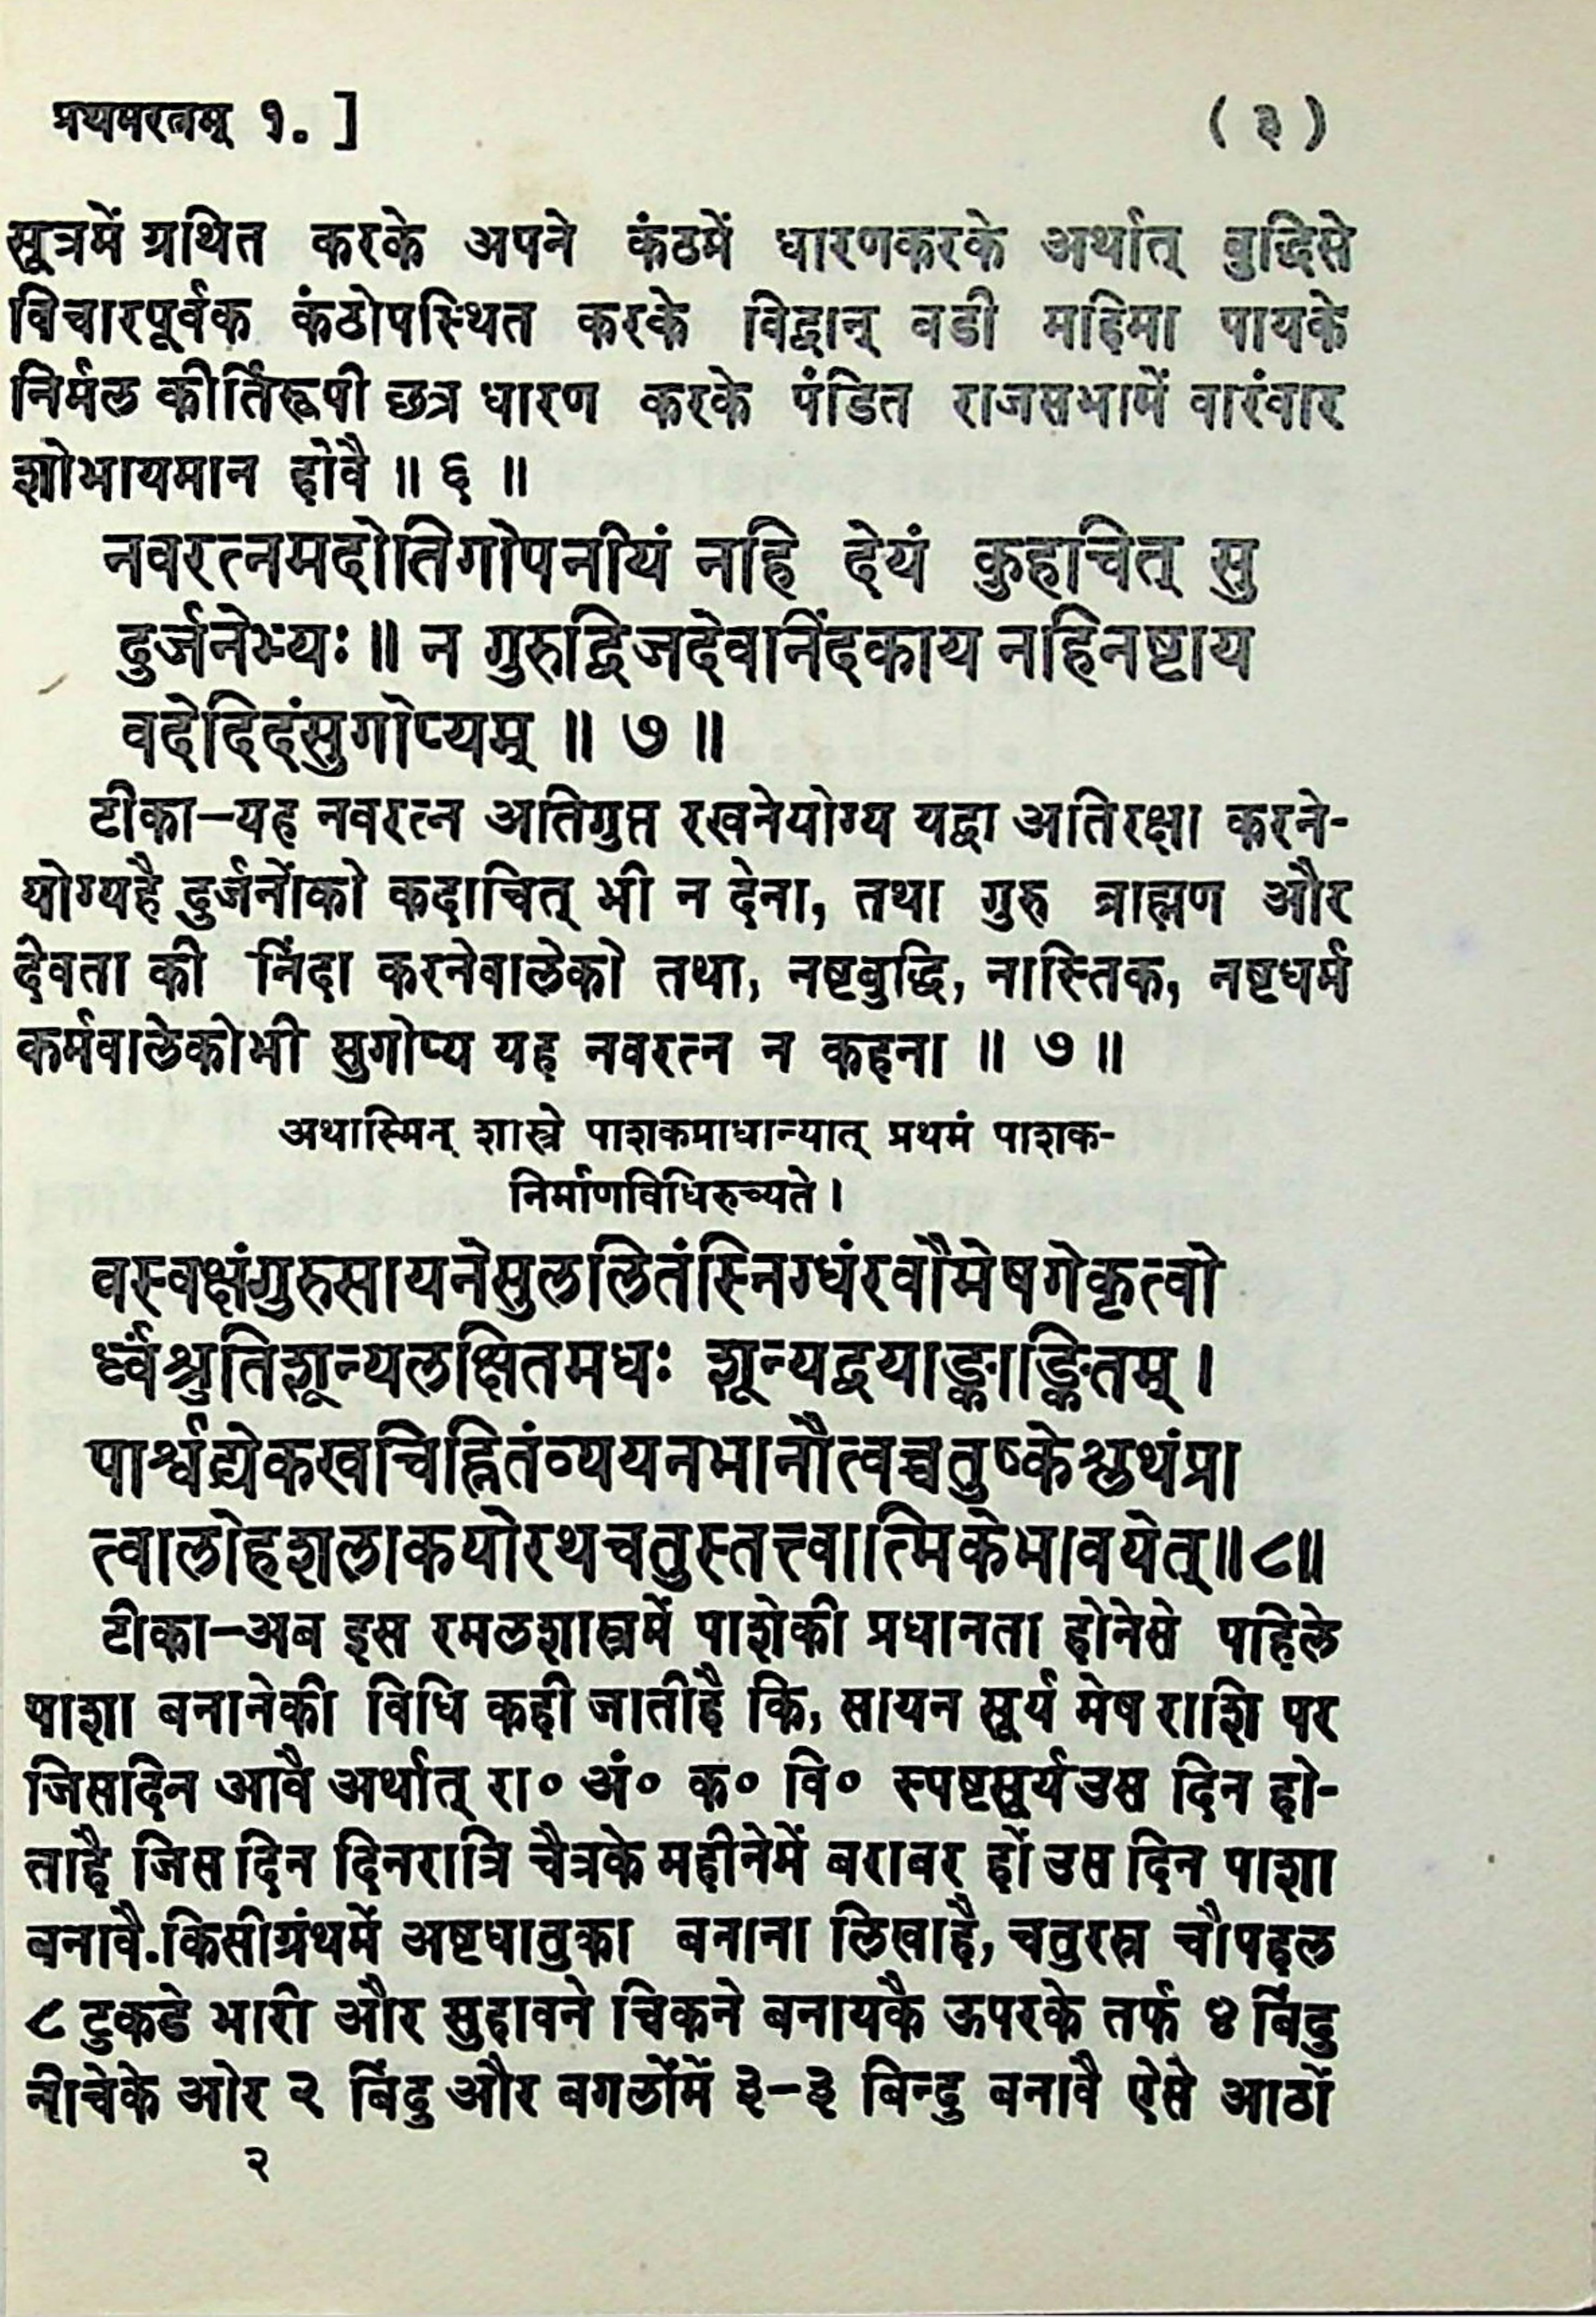 प्रथमरत्नम् १. ]
( ३ )
सूत्रमें ग्रथित करके अपने कंठमें धारणकरके अर्थात् बुद्धिसे
विचारपूर्वक कंठोपस्थित करके विद्वान् वडी महिमा पायके
निर्मल कीर्तिरूपी छत्र धारण करके पंडित राजसभामें वारंवार
शोभायमान होवै ॥ ६ ॥
नवरत्नमदोतिगोपनीयं नहि देयं कुहाचित् सु
दुर्जनेभ्यः ॥ न गुरुद्विजदेवानिंदकाय नहिनष्टाय
वदेदिदंसुगोप्यम् ॥ ७ ॥
टीका–यह नवरत्न अतिगुप्त रखनेयोग्य यद्वा अतिरक्षा करने-
योग्यहै दुर्जनोंको कदाचित् भी न देना, तथा गुरु ब्राह्मण और
देवता की निंदा करनेवालेको तथा, नष्टबुद्धि, नास्तिक, नष्टधर्म
कर्मवालेकोभी सुगोप्य यह नवरत्न न कहना ॥ ७ ॥
अथास्मिन् शास्त्रे पाशकप्राधान्यात् प्रथमं पाशक-
निर्माणविधिरुच्यते ।
वस्वक्षंगुरुसायनेसुललितंस्निग्धंरवौमेषगेकृत्वो
र्ध्वंश्रुतिशून्यलक्षितमधः शून्यद्वयाङ्काङ्कितम् ।
पार्श्वद्येकखचिह्नितंव्ययनभानौत्वच्चतुष्केश्लथंप्रा
त्वालोहशलाकयोरथचतुस्तत्त्वात्मिकेभावयेत्॥८॥
टीका–अब इस रमलशास्त्रमें पाशेकी प्रधानता होनेसे पहिले
पाशा बनानेकी विधि कही जातीहै कि, सायन सूर्य मेष राशि पर
जिसदिन आवै अर्थात् रा० अं० क० वि० स्पष्टसूर्यउस दिन हो-
ताहै जिस दिन दिनरात्रि चैत्रके महीनेमें बराबर हों उस दिन पाशा
बनावै.किसीग्रंथमें अष्टधातुका बनाना लिखाहै, चतुरस्र चौपहल
८ टुकडे भारी और सुहावने चिकने बनायकै ऊपरके तर्फ ४ बिंदु
नीचेके ओर २ बिंदु और बगलोंमें ३–३ बिन्दु बनावै ऐसे आठों
२